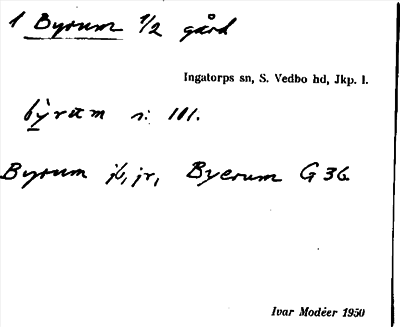 1 Byrum 1/2 gård
Ingatorps sn, S. Vedbo hd, Jkp. l.
by̌ram s: 101.
Byrum jb, jr, Byerum G 36
Ivar Modéer 1950